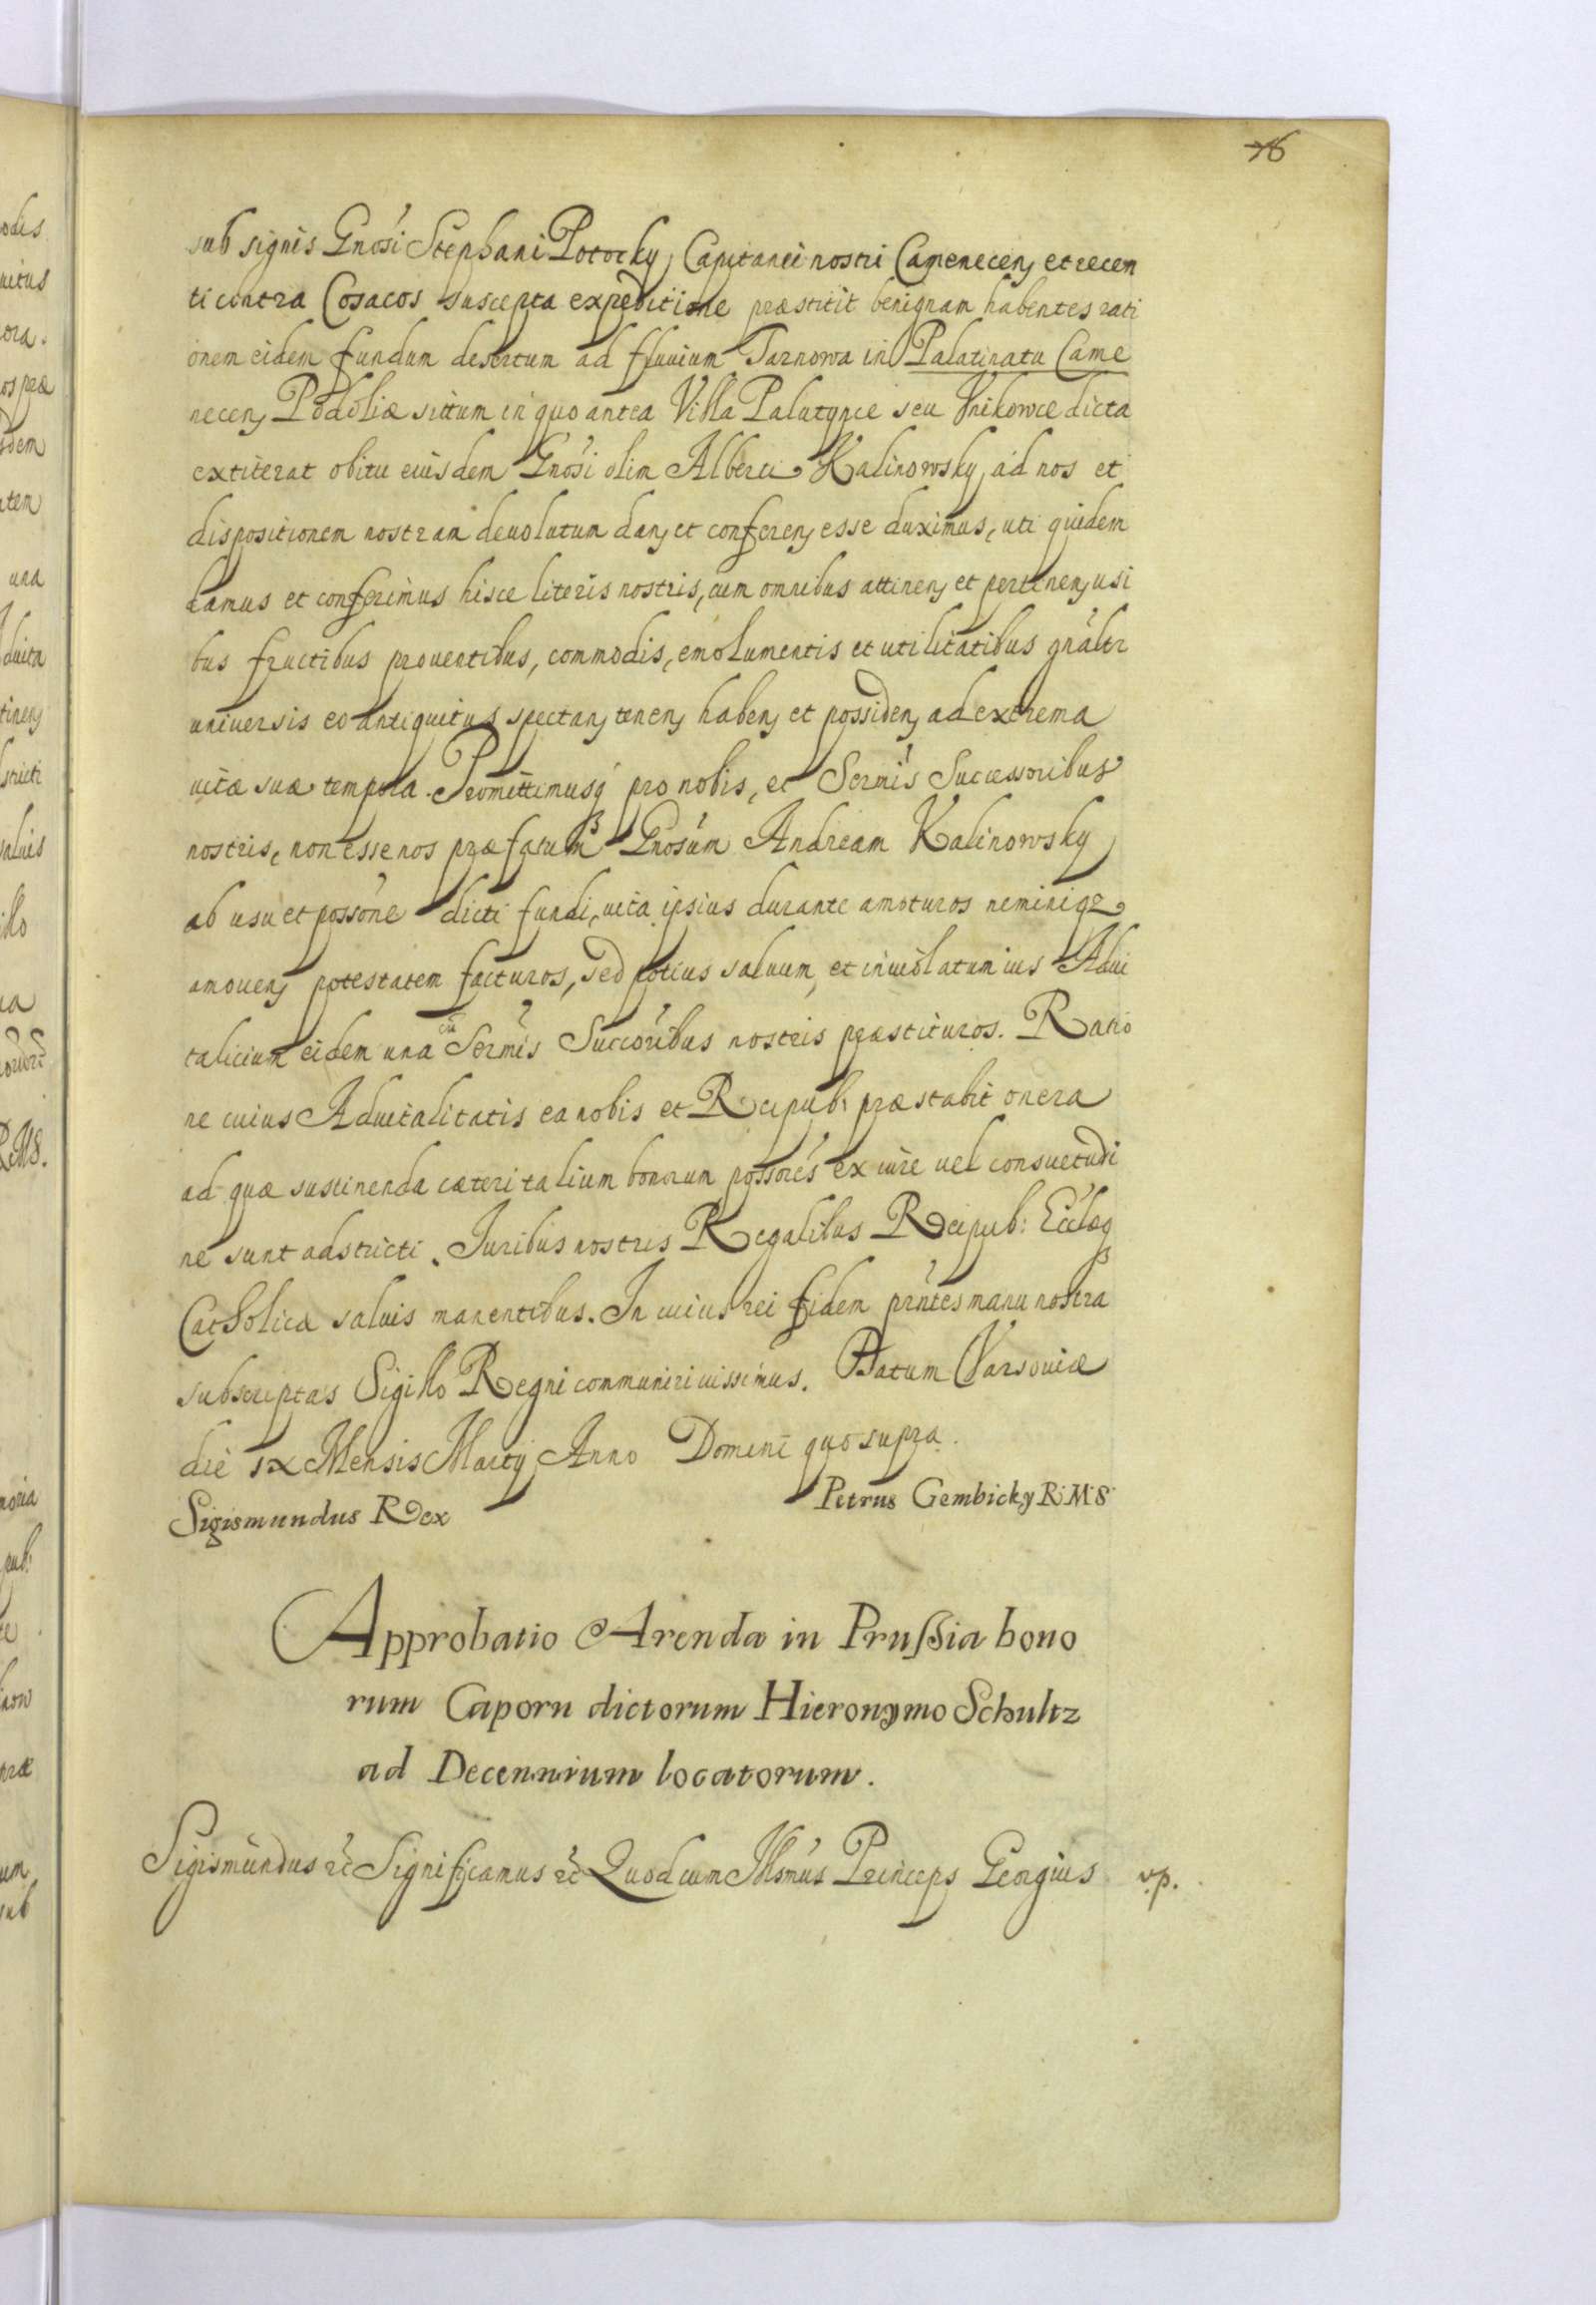 76
sub signis Gnosi Stephani Potocky Capitanei nostri Camenecens et recen
ti contra Cosacos suscepta expeditione præstitit benignam habentes rati
onem eidem fundum desertum ad fluvium Tarnowa in Palatinatu Came
necens Podoliæ situm in quo antea Villa Palutynce seu Knikowce dicta
extiterat obitu eiusdem Gnosi olim Alberti Kalinowsky ad nos et
dispositionem nostram devolutum dans et conferens esse duximus, uti quidem
damus et conferimus hisce literis nostris, cum omnibus attinens et pertinens usi
bus fructibus proventibus, commodis, emolumentis et utilitatibus gnãltr
universis eo antiquitus spectans tenens habens et possidens ad extrema
vitæ suæ tempora. Promittimusq pro nobis, et Sermis Successoribus
nostris, non esse nos præfatum Gnosum Andream Kalinowsky
ab usu et possone dicti fundi, vita ipsius durante amoturos neminiqz
amovens potestatem facturos, sed potius salvum, et inviolatum ius Advi
talicium eidem una cũ Sermis Succoribus nostris præstituros. Ratio
ne cuius Advitalitatis ea nobis et Reipub: præstabit onera
ad quæ sustinenda cæteri talium bonorum possores ex iure vel consuetudi
ne sunt adstricti. Juribus nostris Regalibus Reipub: Ecclæq
Catholicæ salvis manentibus. In cuius rei fidem prntes manu nostra
subscriptas Sigillo Regni communiri iussimus. Datum Varsoviæ
die IX Mensis Martij Anno Domini quo supra.
Sigismundus Rex Petrus Gembicky R:M:S:
Approbatio Arendæ in Prussia bono
rum Caporn dictorum Hieronymo Schultz
ad Decennium locatorum.
Sigismundus etc Significamus etc Quod cum Illsmus Princeps Georgius v.p.